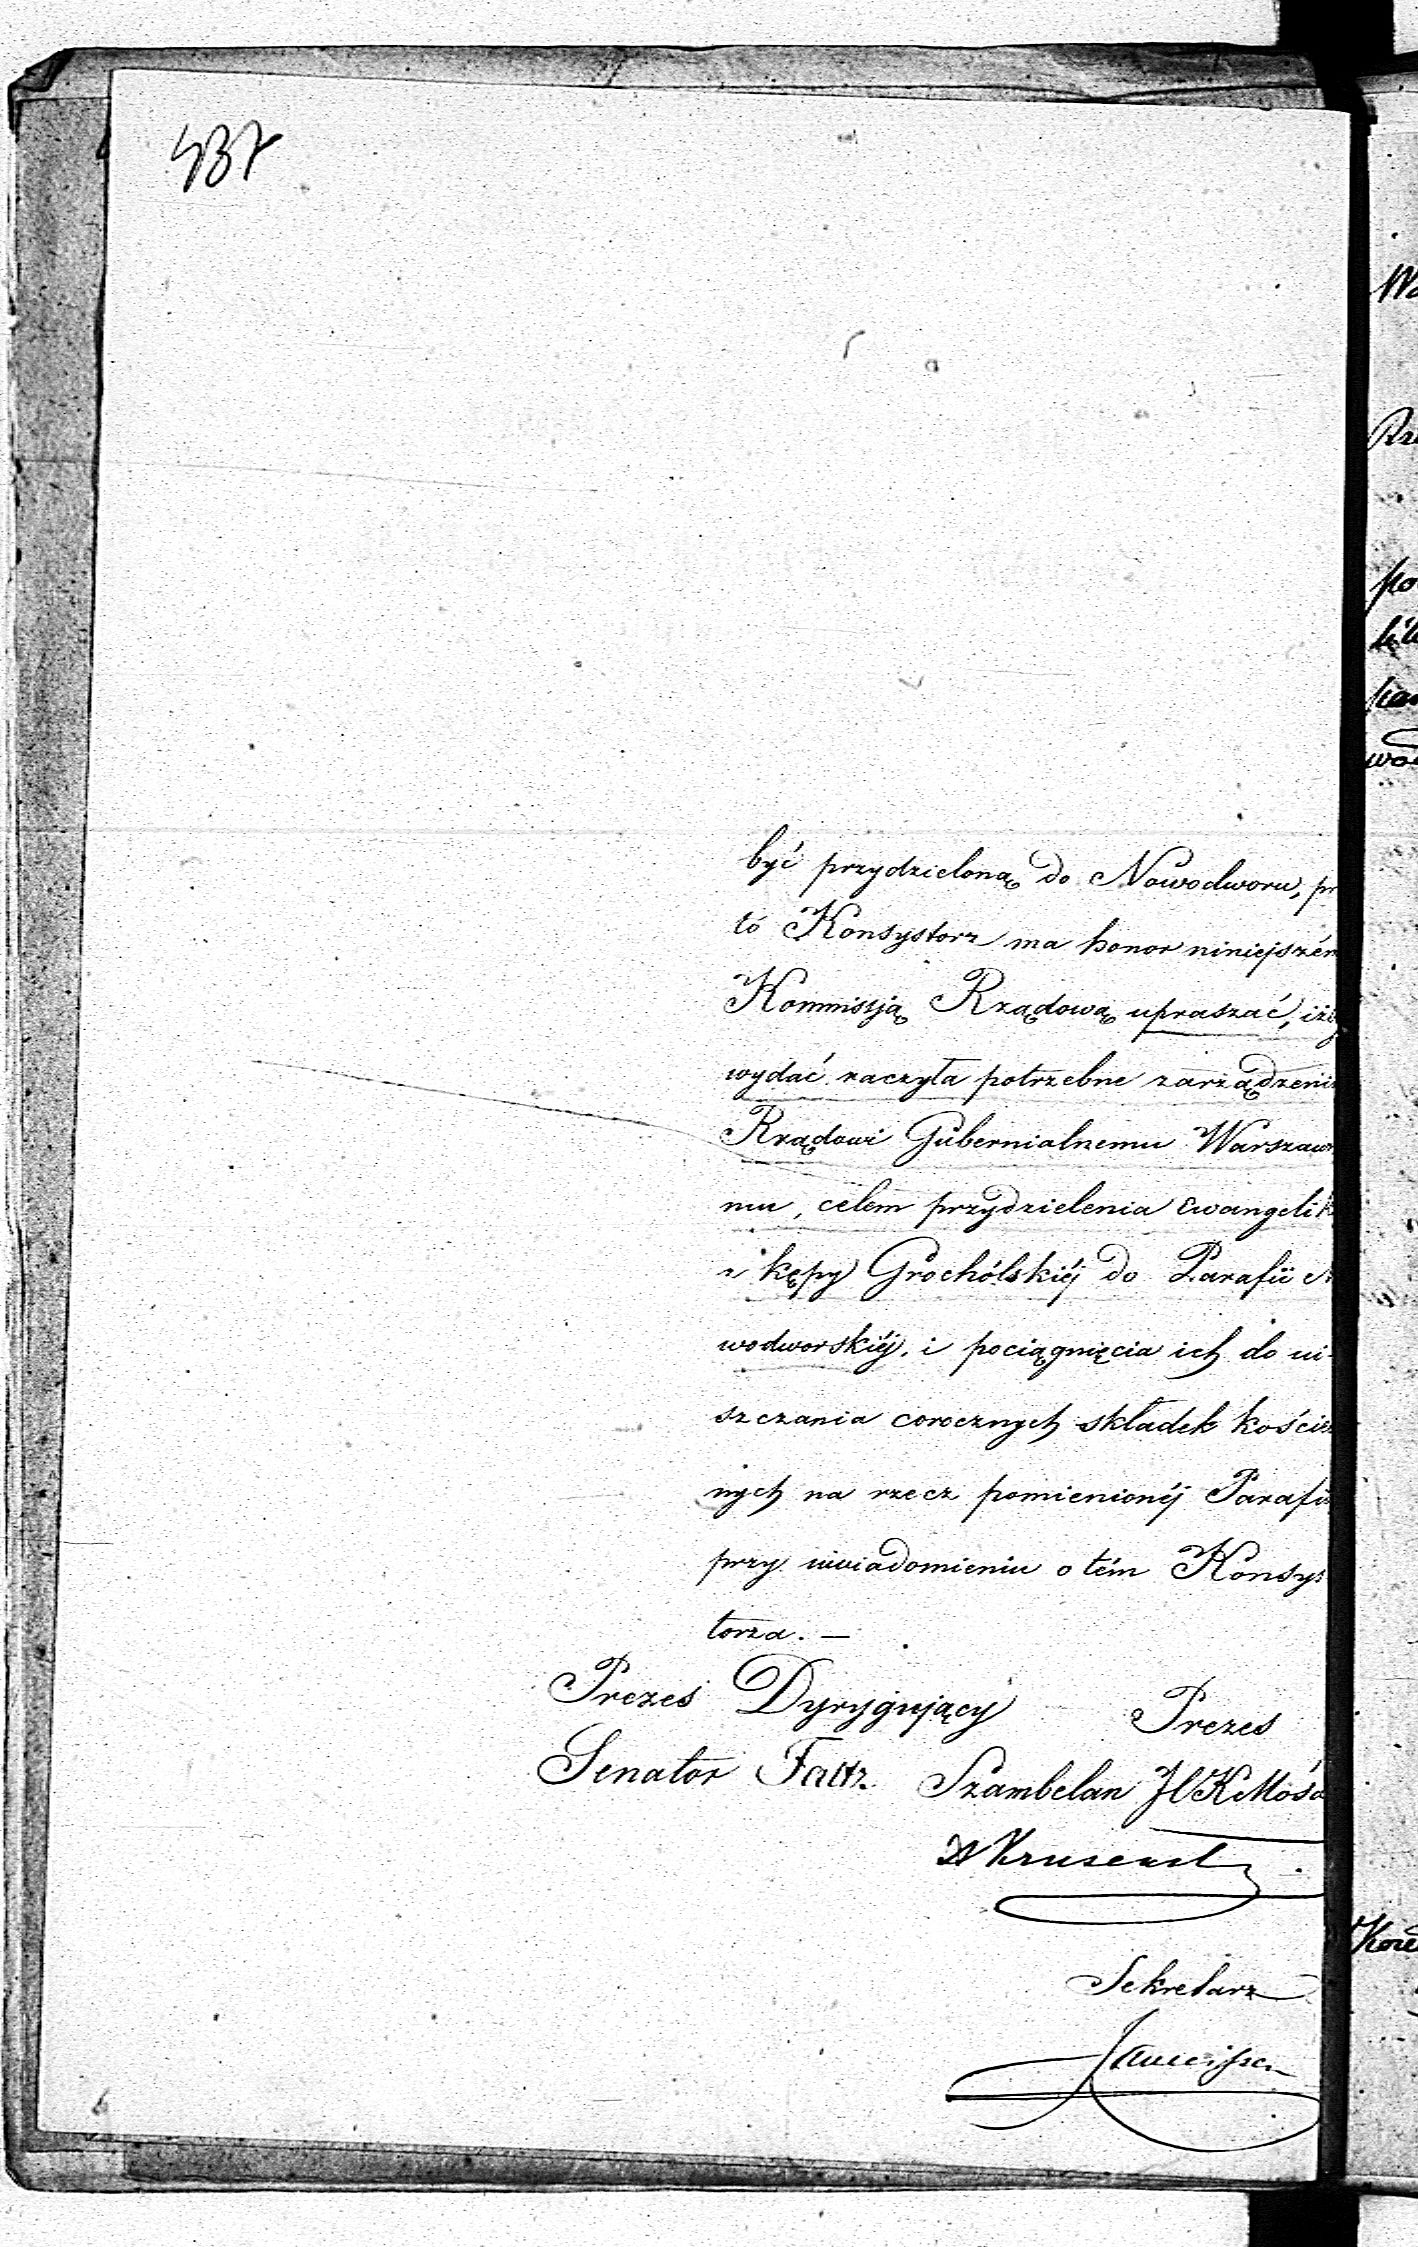 437
być przydzieloną do Nowodworu, pr
tó Konsystorz ma honor niniejszém
Kommissją Rządową upraszać, iżby
wydać raczyła potrzebne zarządzeni
Rządowi Gubernialnemu Warszaws
mu, celem przydzielenia Ewangelik
z kępy Grochólskiéj do Parafii N
wodworskiéj, i pociągnięcia ich do ui-
szczania corocznych składek kościel
nych na rzecz pomienionéj Parafii
przy uwiadomieniu o tém Konsys
torza. —
Prezes Dyrygujący Prezes
Senator Faltz Szambelan JCKMości
Sekretarz